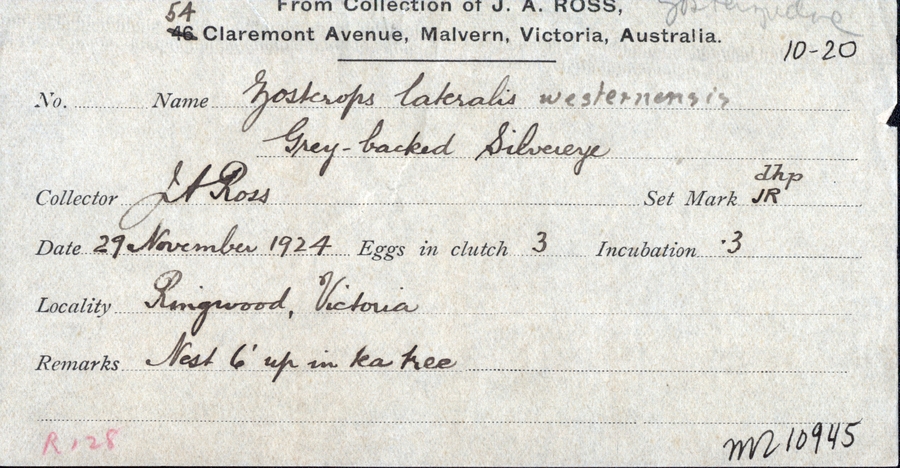 From Collection of J. A. ROSS,
54
46 Claremont Avenue, Malvern, Victoria, Australia.
10-20
No. Name Zosterops lateralis westernensis
Grey-backed Silvereye
dhp
Collector J A Ross Set Mark JR
Date 29 November 1924 Eggs in clutch 3 Incubation ·3
Locality Ringwood, Victoria
Remarks Nest 6' up in tea tree
R.128
10945